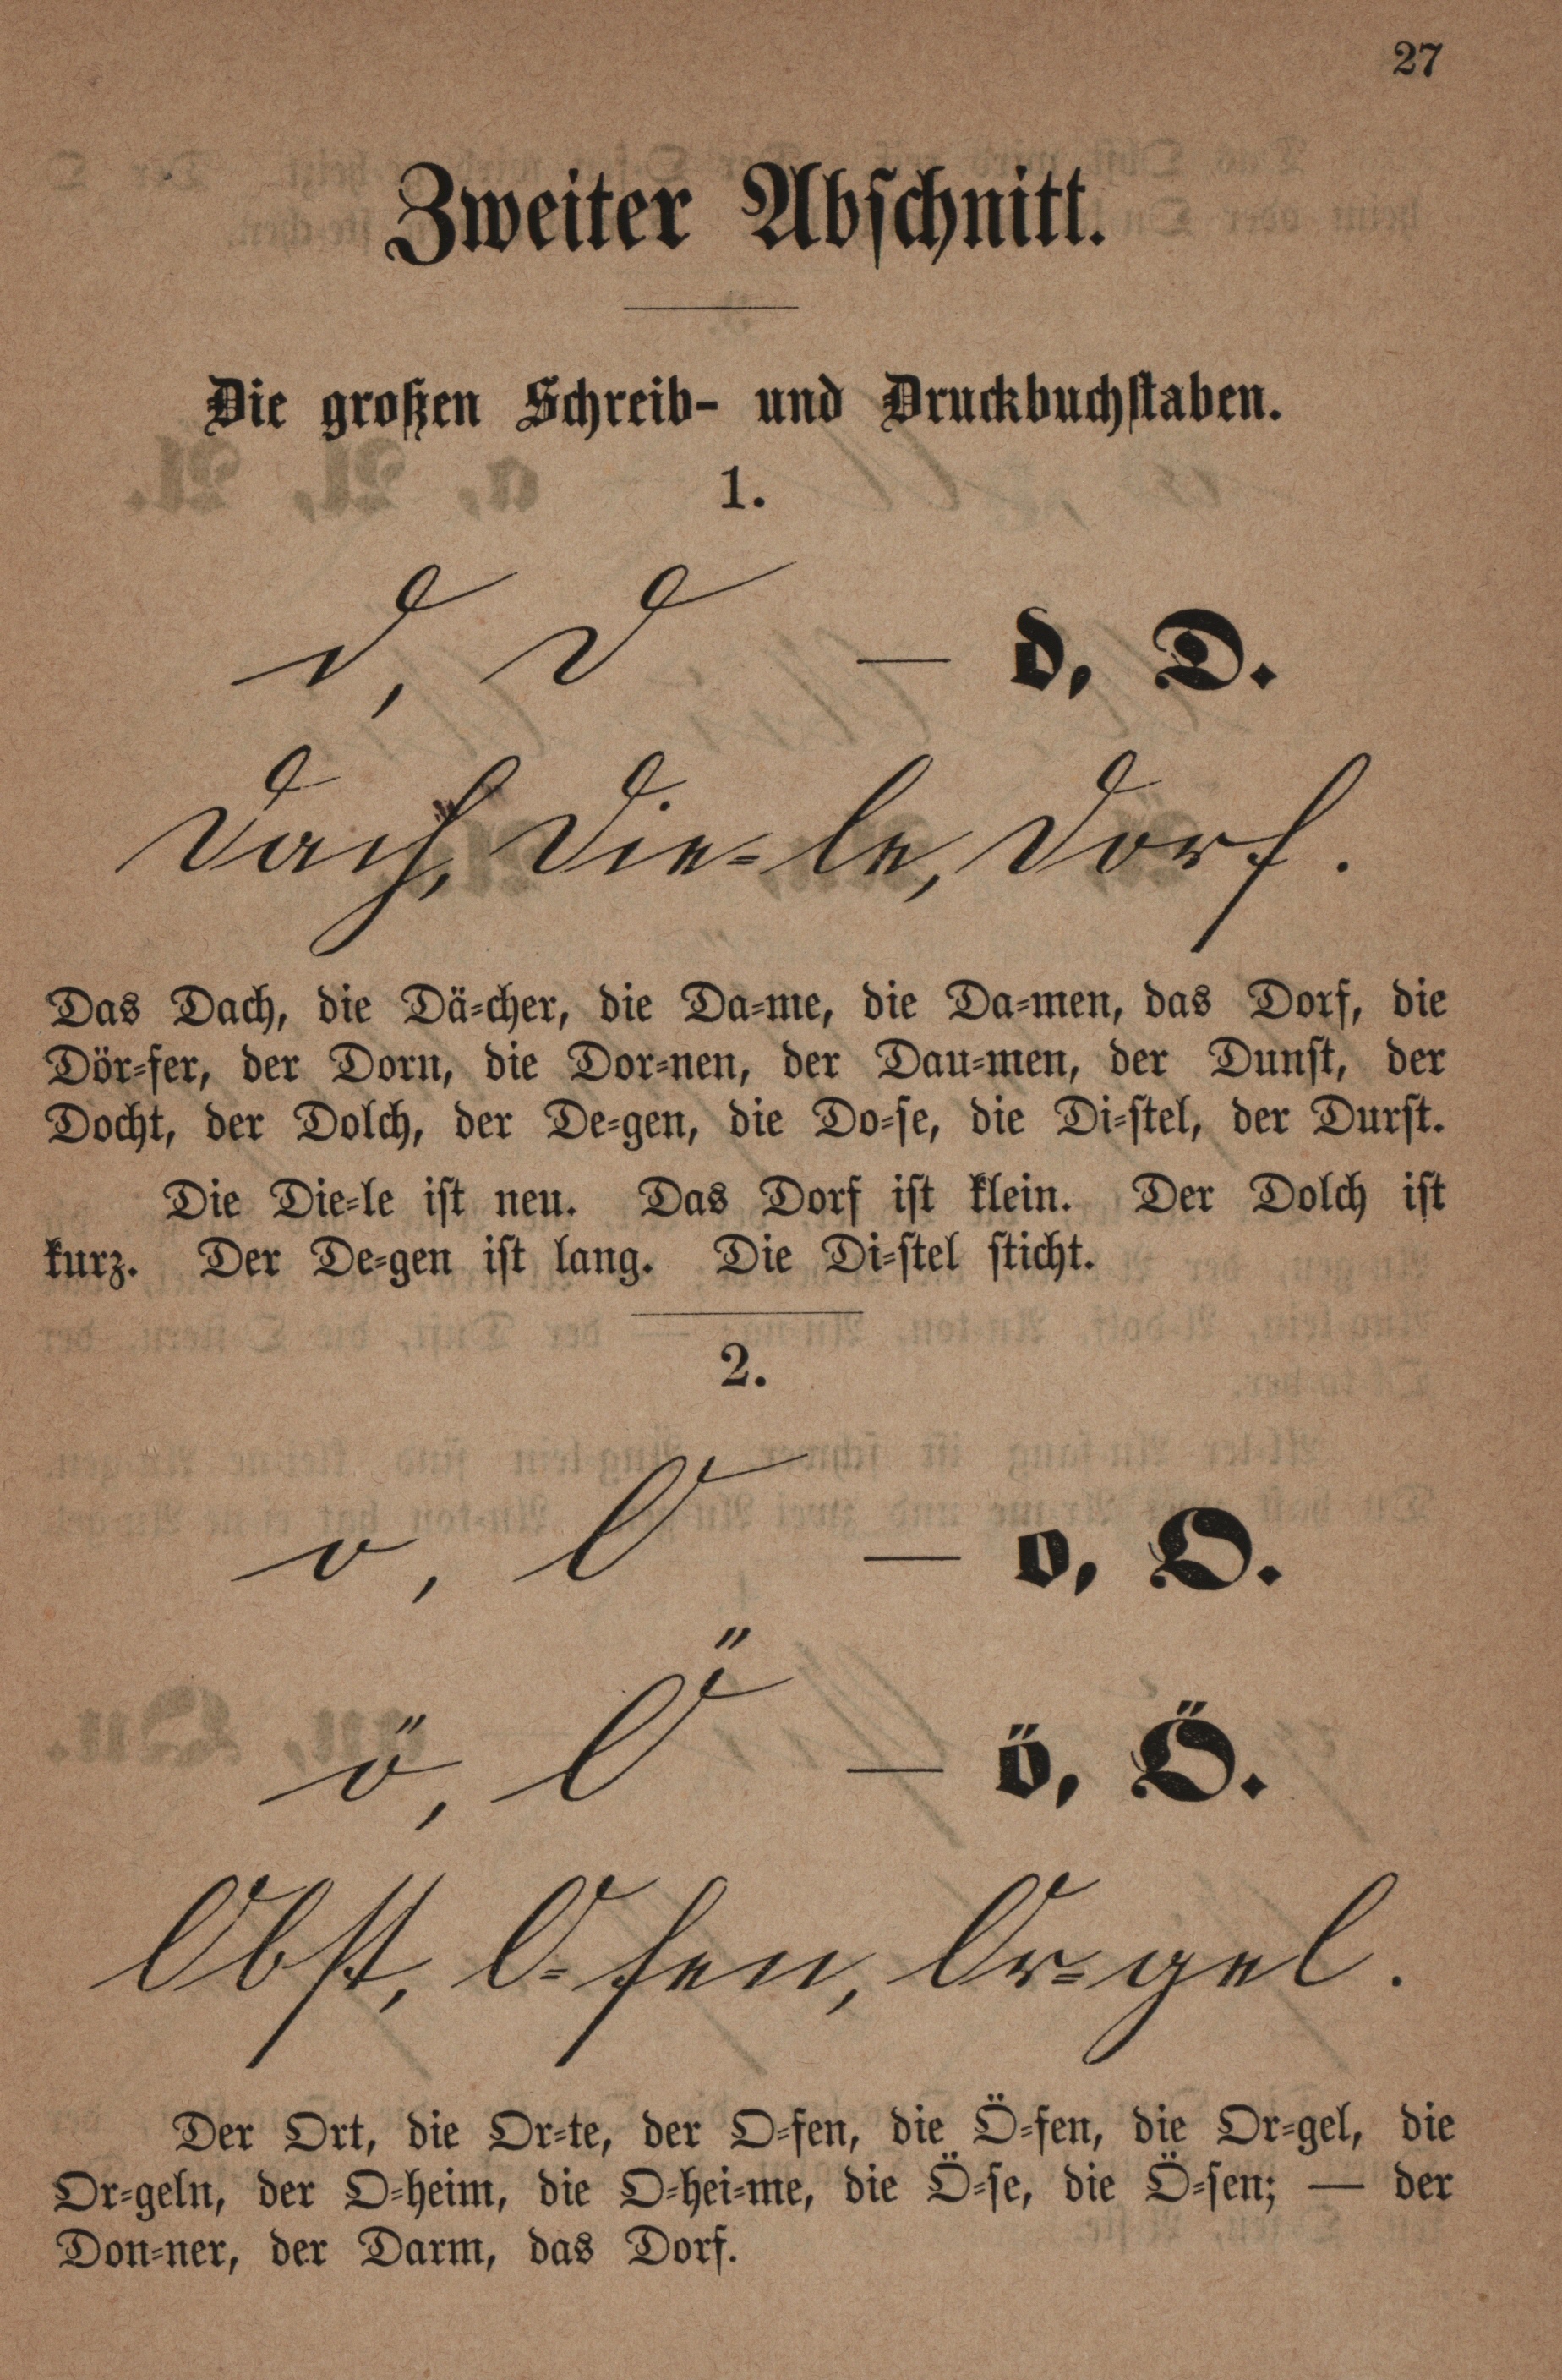 27
Zweiter Abschnitt.
Die großen Schreib- und Druckbuchstaben.
1.
d, D — d, D.
Dach, Die-le, Dorf.
Das Dach, die Dä-cher, die Da-me, die Da-men, das Dorf, die
Dör-fer, der Dorn, die Dor-nen, der Dau-men, der Dunst, der
Docht, der Dolch, der De-gen, die Do-se, die Di-stel, der Durst.
Die Die-le ist neu. Das Dorf ist klein. Der Dolch ist
kurz. Der De-gen ist lang. Die Di-stel sticht.
2.
o, O — o, O.
ö, Ö — ö, Ö.
Obst, O-fen, Or-gel.
Der Ort, die Or-te, der O-fen, die Ö-fen, die Or-gel, die
Or-geln, der O-heim, die O-hei-me, die Ö-se, die Ö-sen; — der
Don-ner, der Darm, das Dorf.